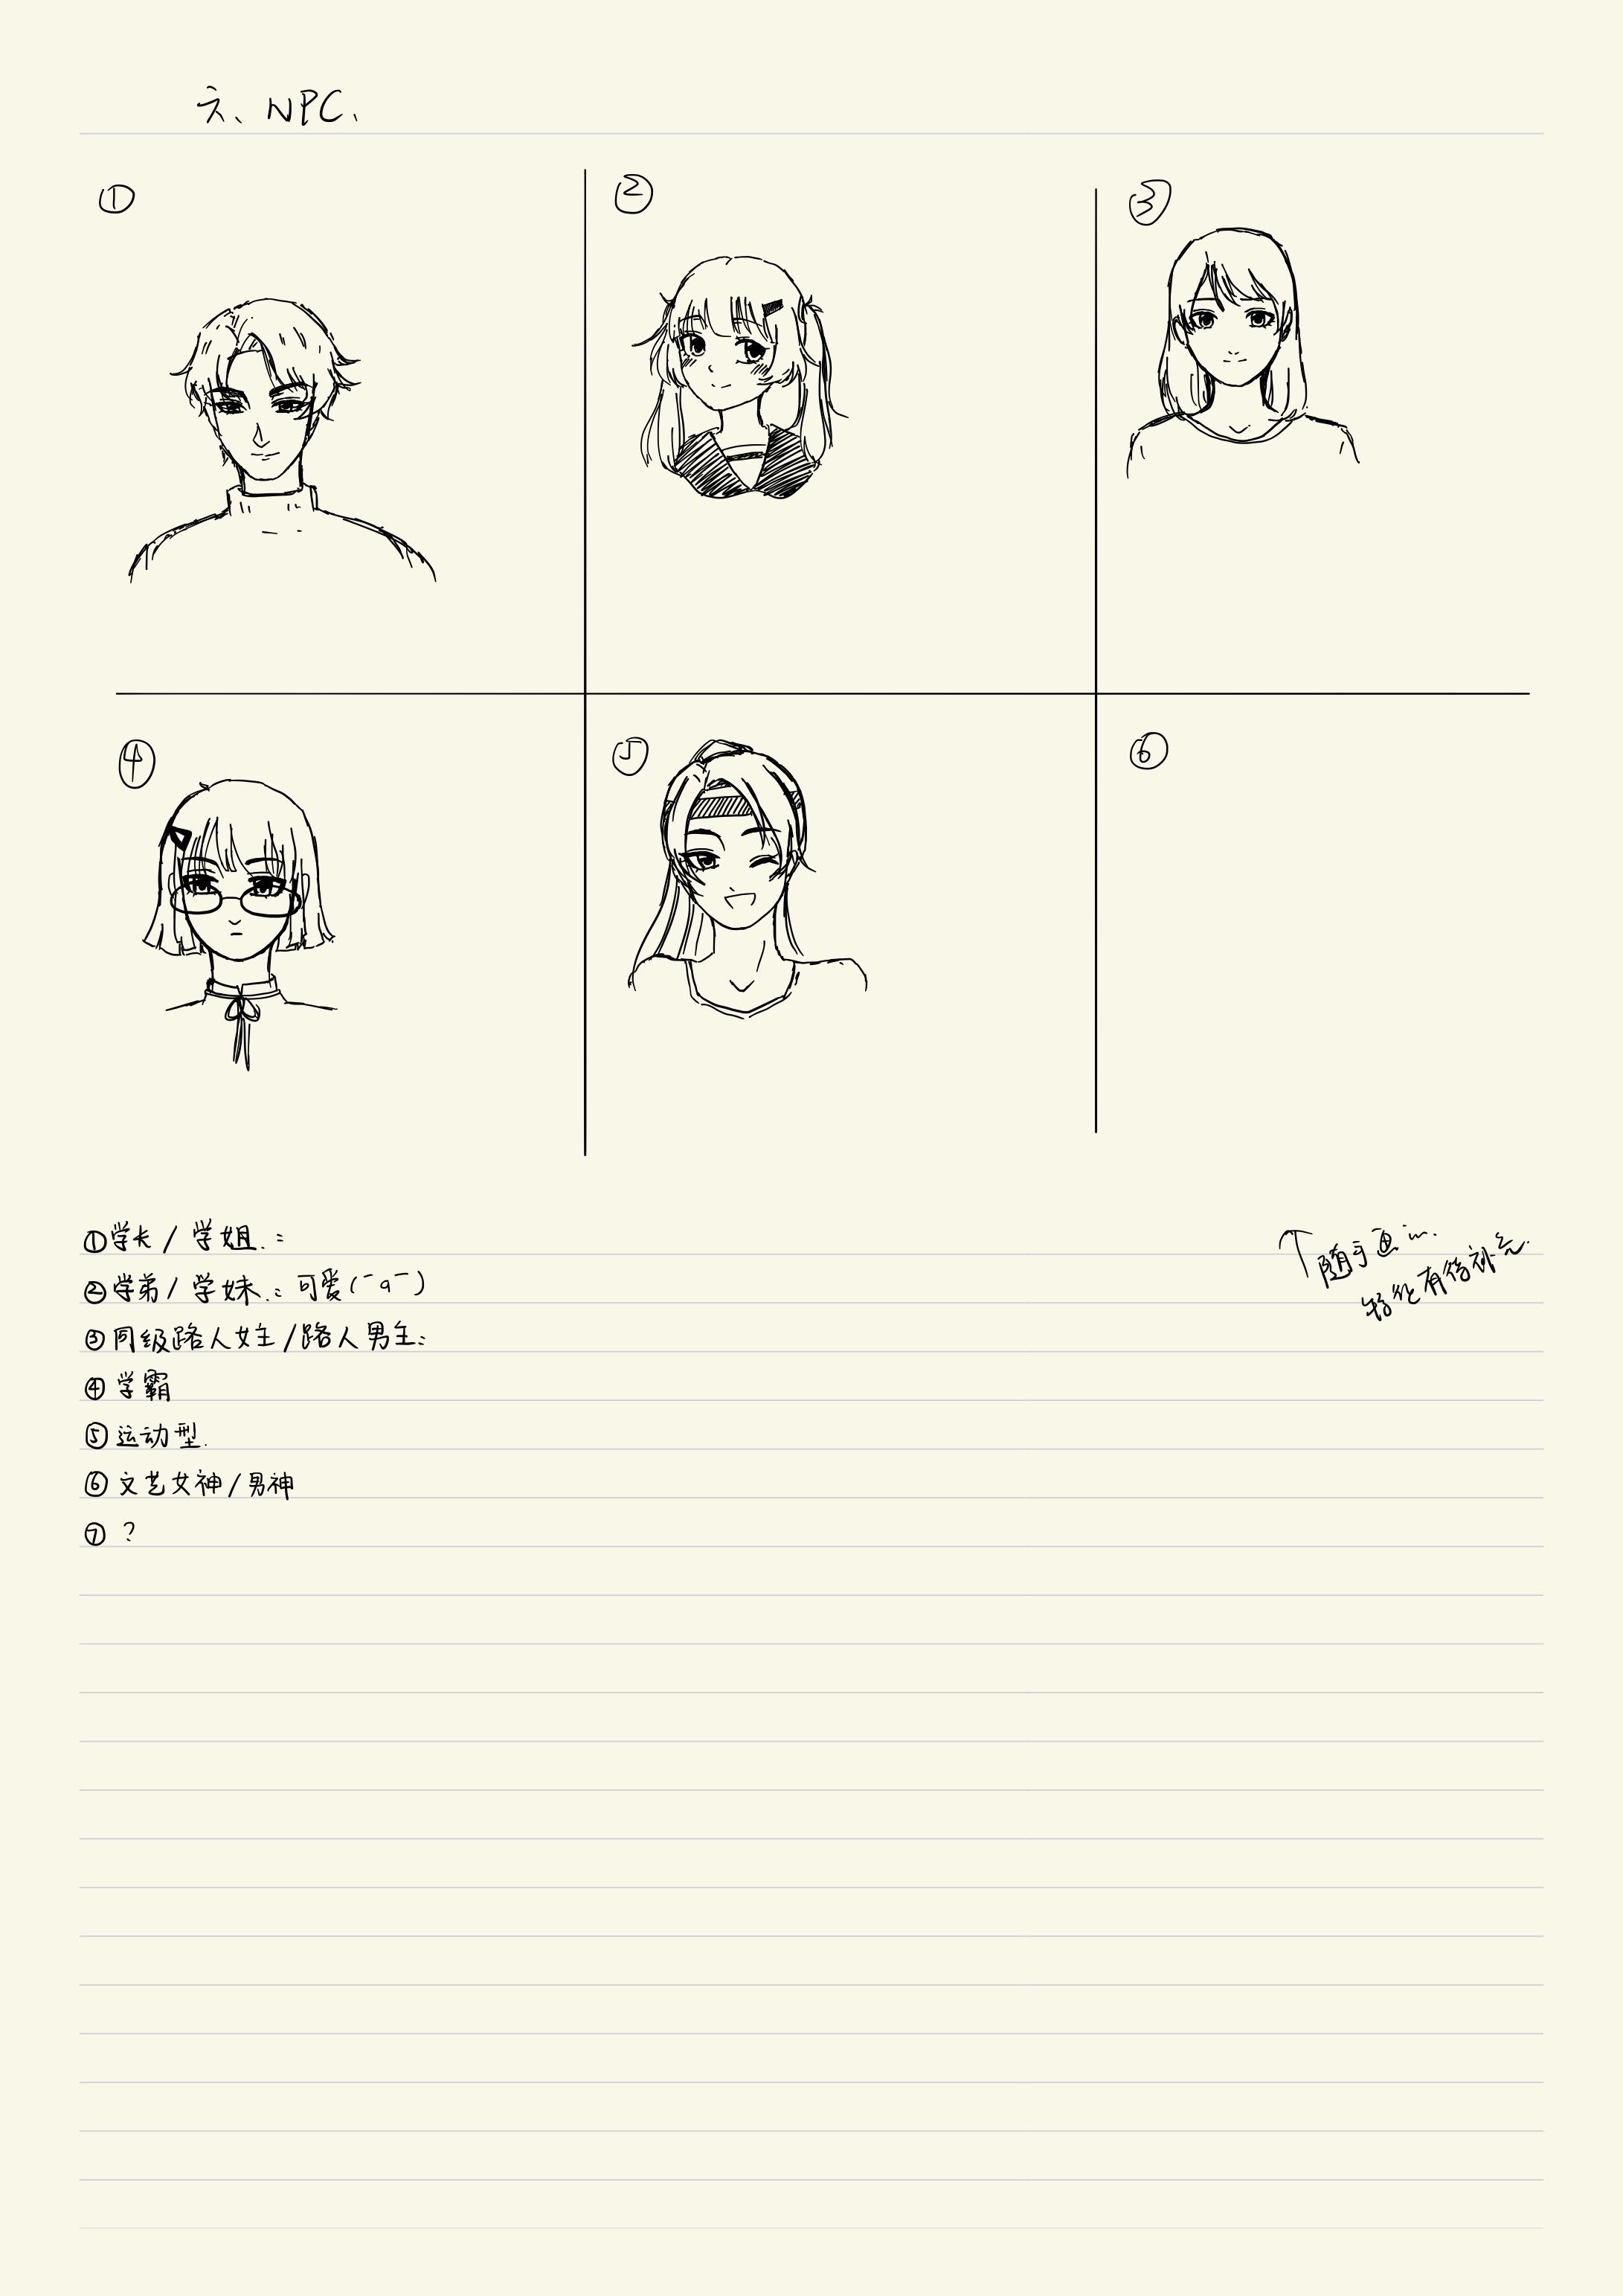 六、NPC、
①
②
③
④
⑤
⑥
①学长/学姐.:
②学弟/学妹.: 可爱(¯q¯)
③同级路人女主/路人男主:
④学霸
⑤运动型.
⑥文艺女神/男神
⑦?
↑随手画
有待补充.